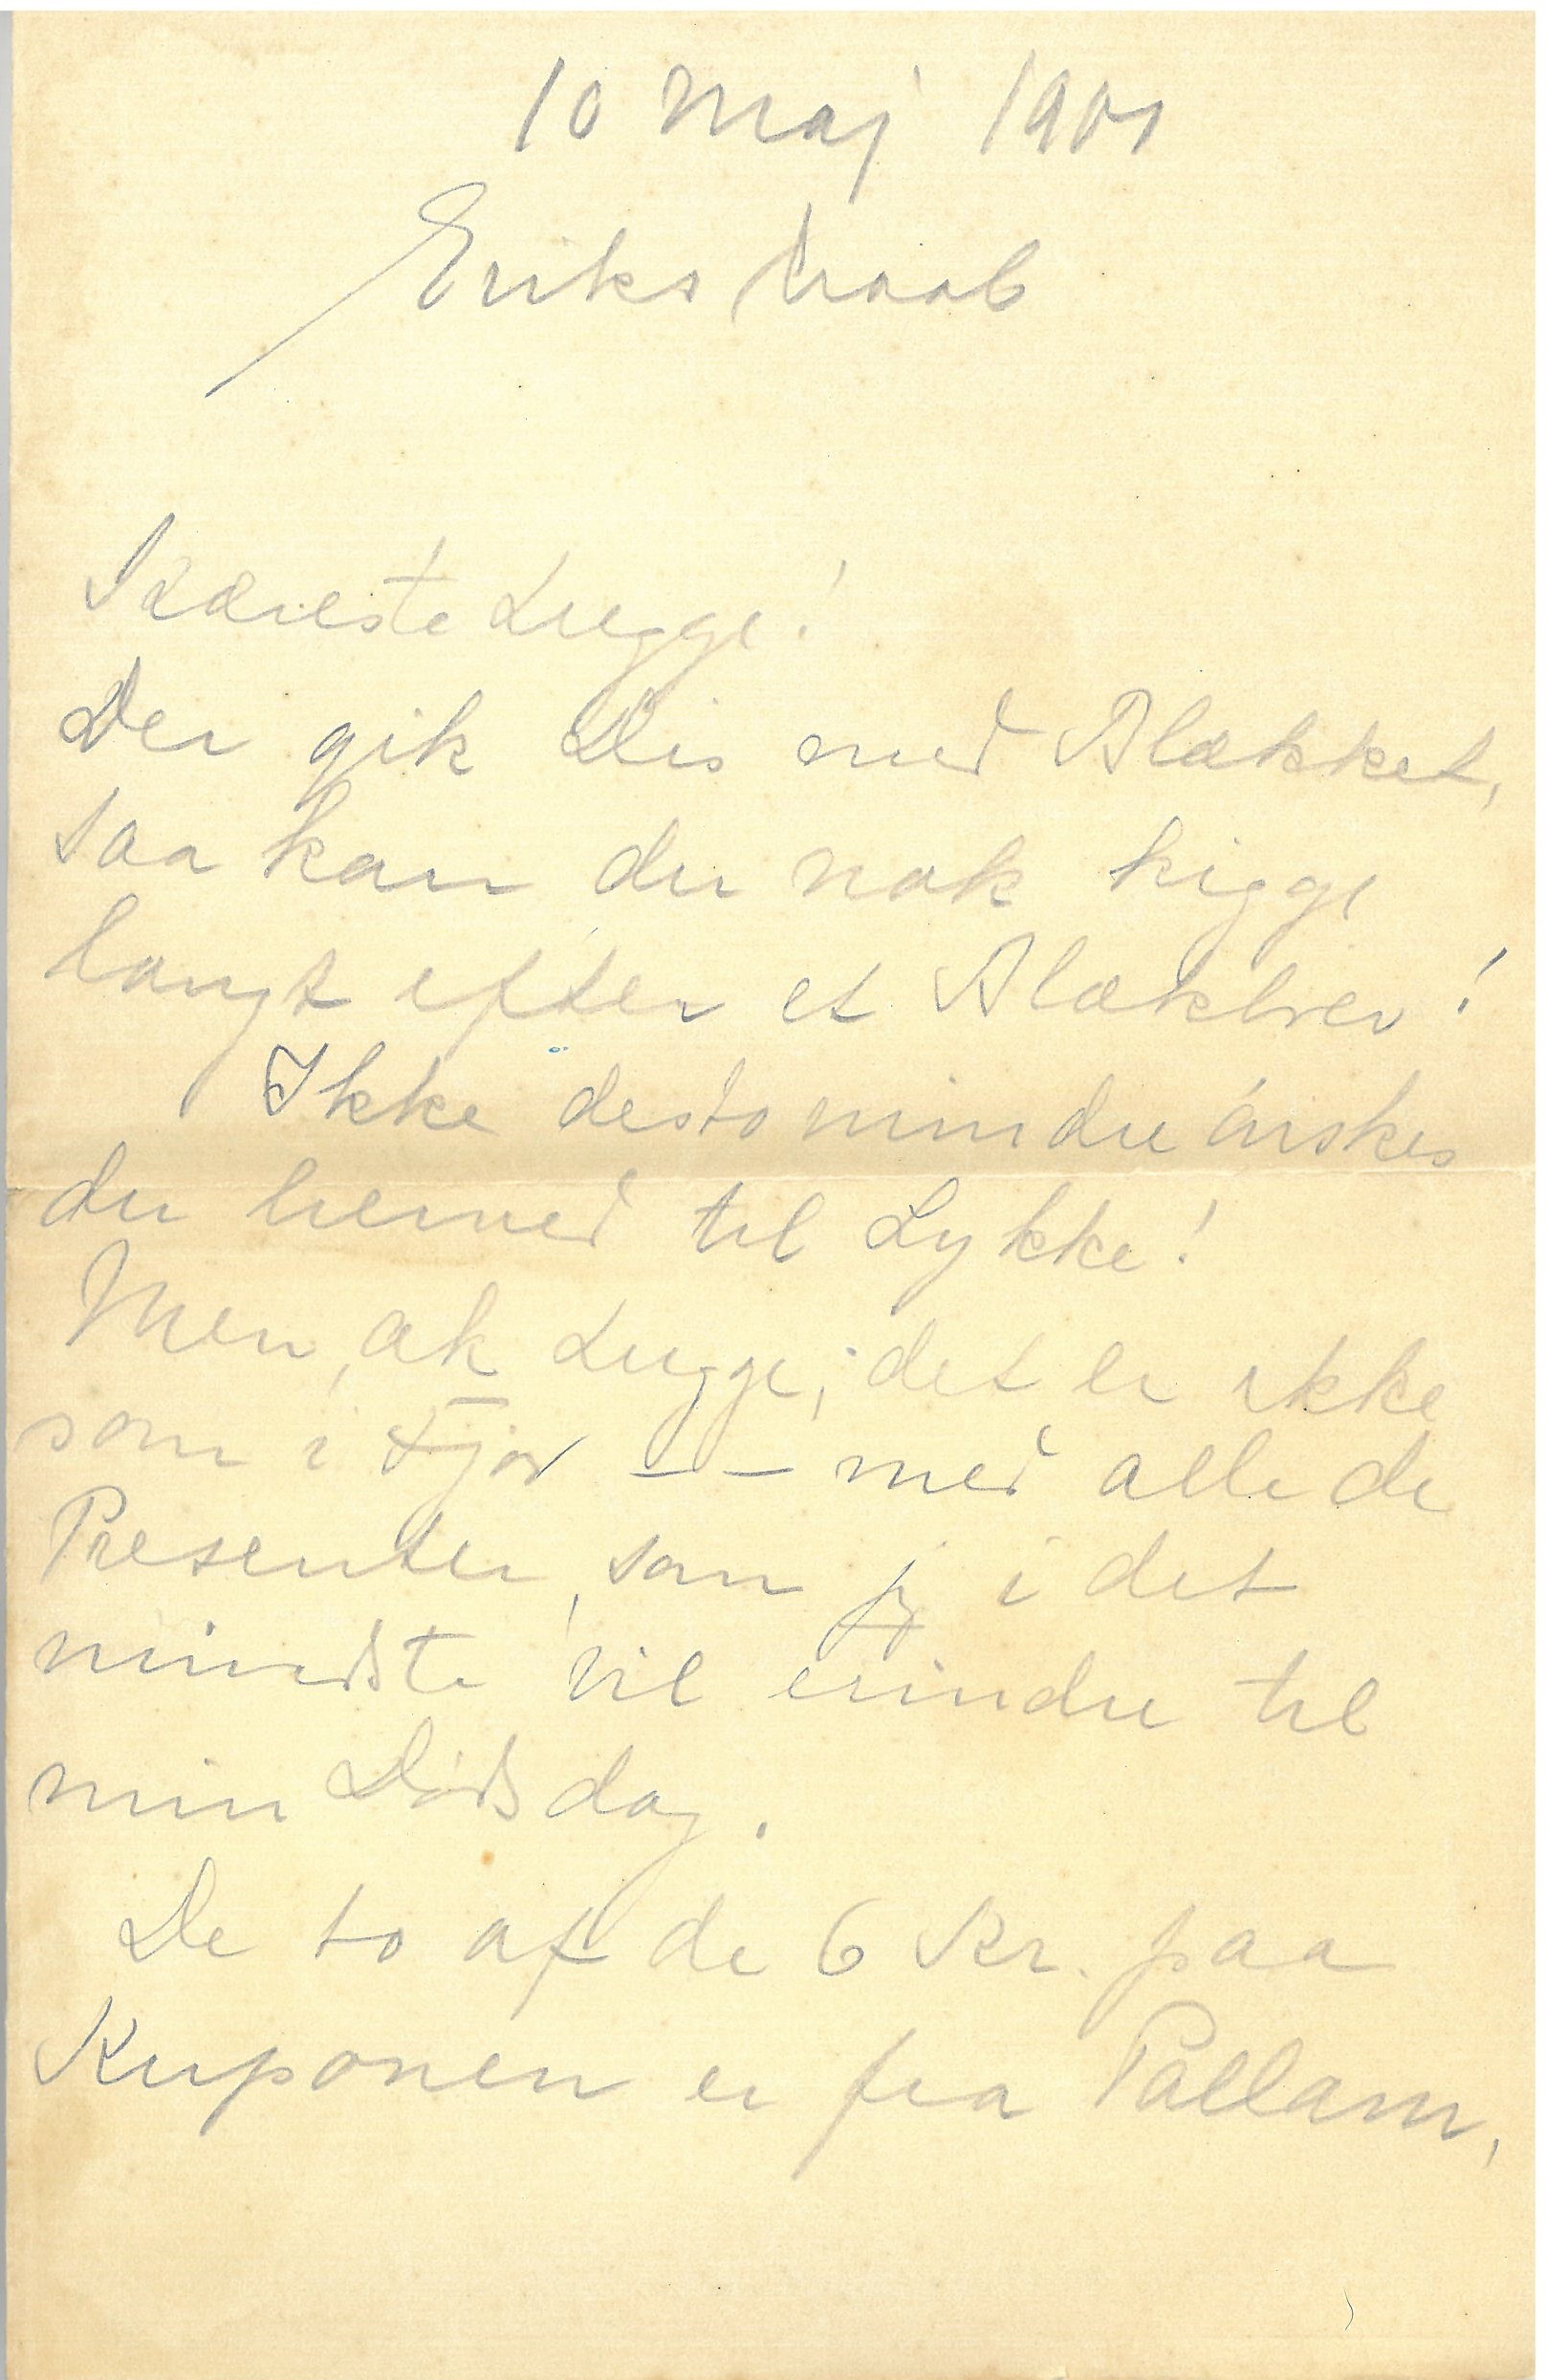 10 Maj 1901
Erikshaab
Kæreste Lugge!
Der gik Dis med Blækket,
saa kan du nok kigge
langt efter et Blækbrev!
Ikke desto mindre ønskes
du herved til Lykke!
Men, ak Lugge, det er ikke
som i Fjor – – med alle de
Presenter, som jeg i det
mindste vil erindre til
min Dødsdag.
De to af de 6 Kr. paa
Kuponen er fra Pallam,